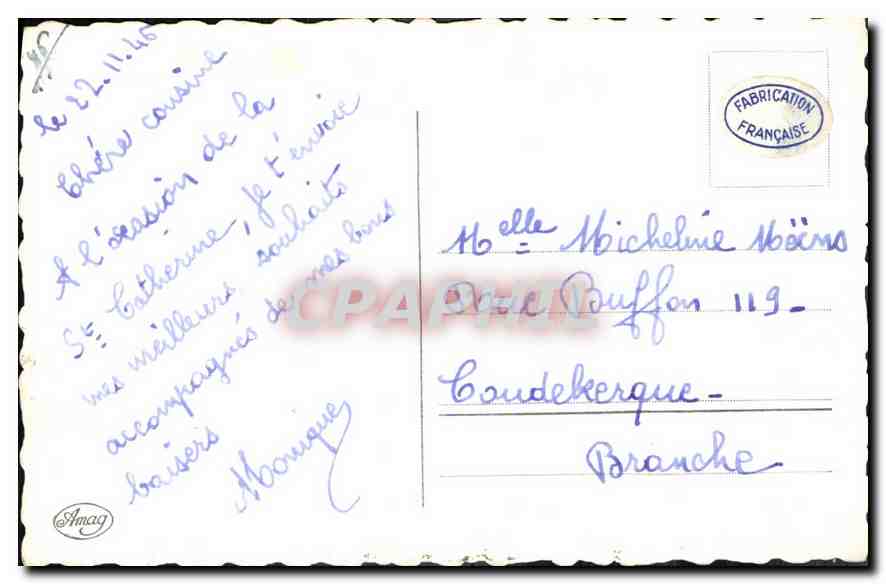 45
le 22.11.45
Chère cousine
A l'ocasion de la
Ste Cathérine, je t'envoie
mes meilleurs souhaits
accompagnés de mes bons
baisers
Monique
Amag
FABRICATION
FRANÇAISE
Melle Micheline
Buffon 119-
Coudekerque-
Branche
CPAPHIL